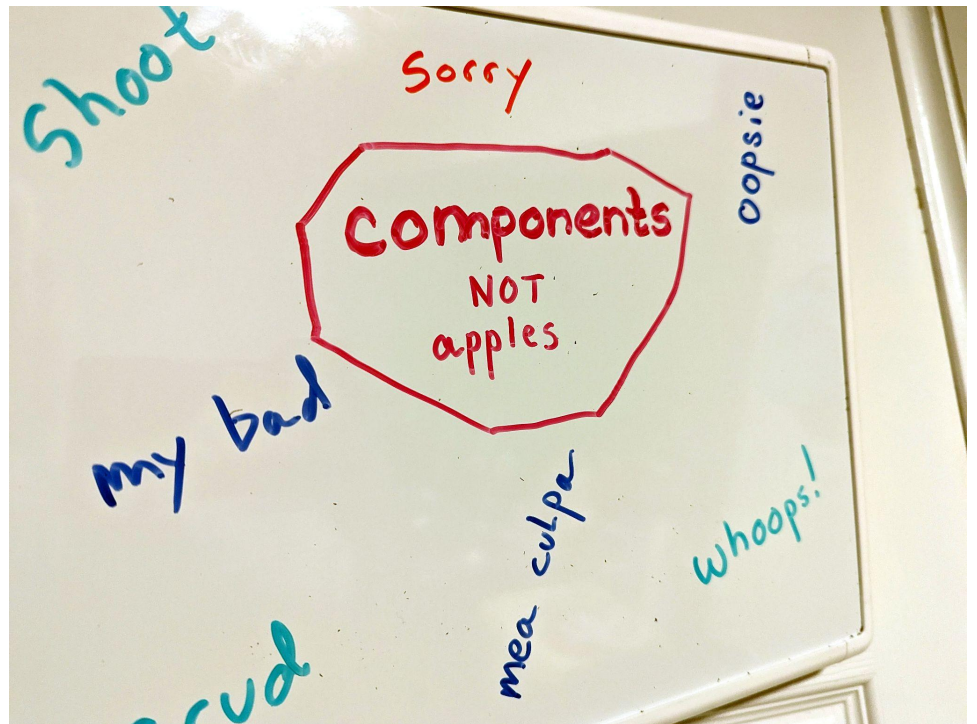 Shoot
Sorry
oopsie
Components
NOT
apples
my bad
mea culpa
whoops!